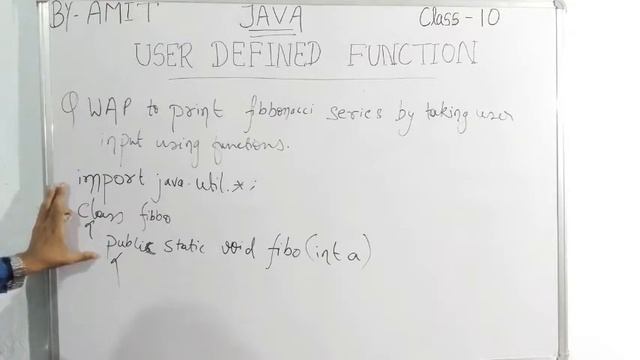 BY- AMIT JAVA Class - 10
USER DEFINED FUNCTION
Q WAP to print fibbonacci series by taking user
input using functions.
import java.util.*;
Class fibbo
{
public static void fibo(int a)
{